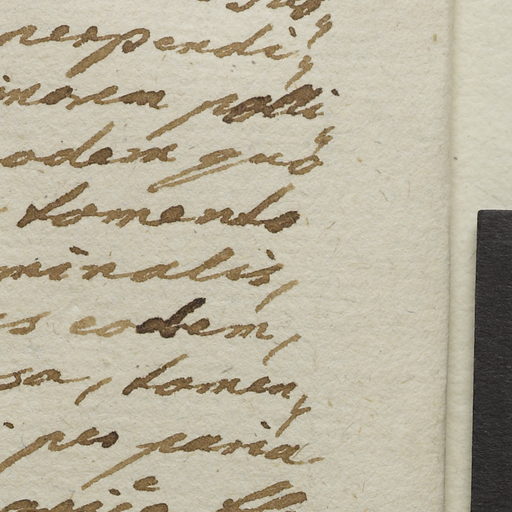 perpendi-
inorem polli-
odem quo
tomento
minalis,
s eodem,
sa, tomen-
pes paria